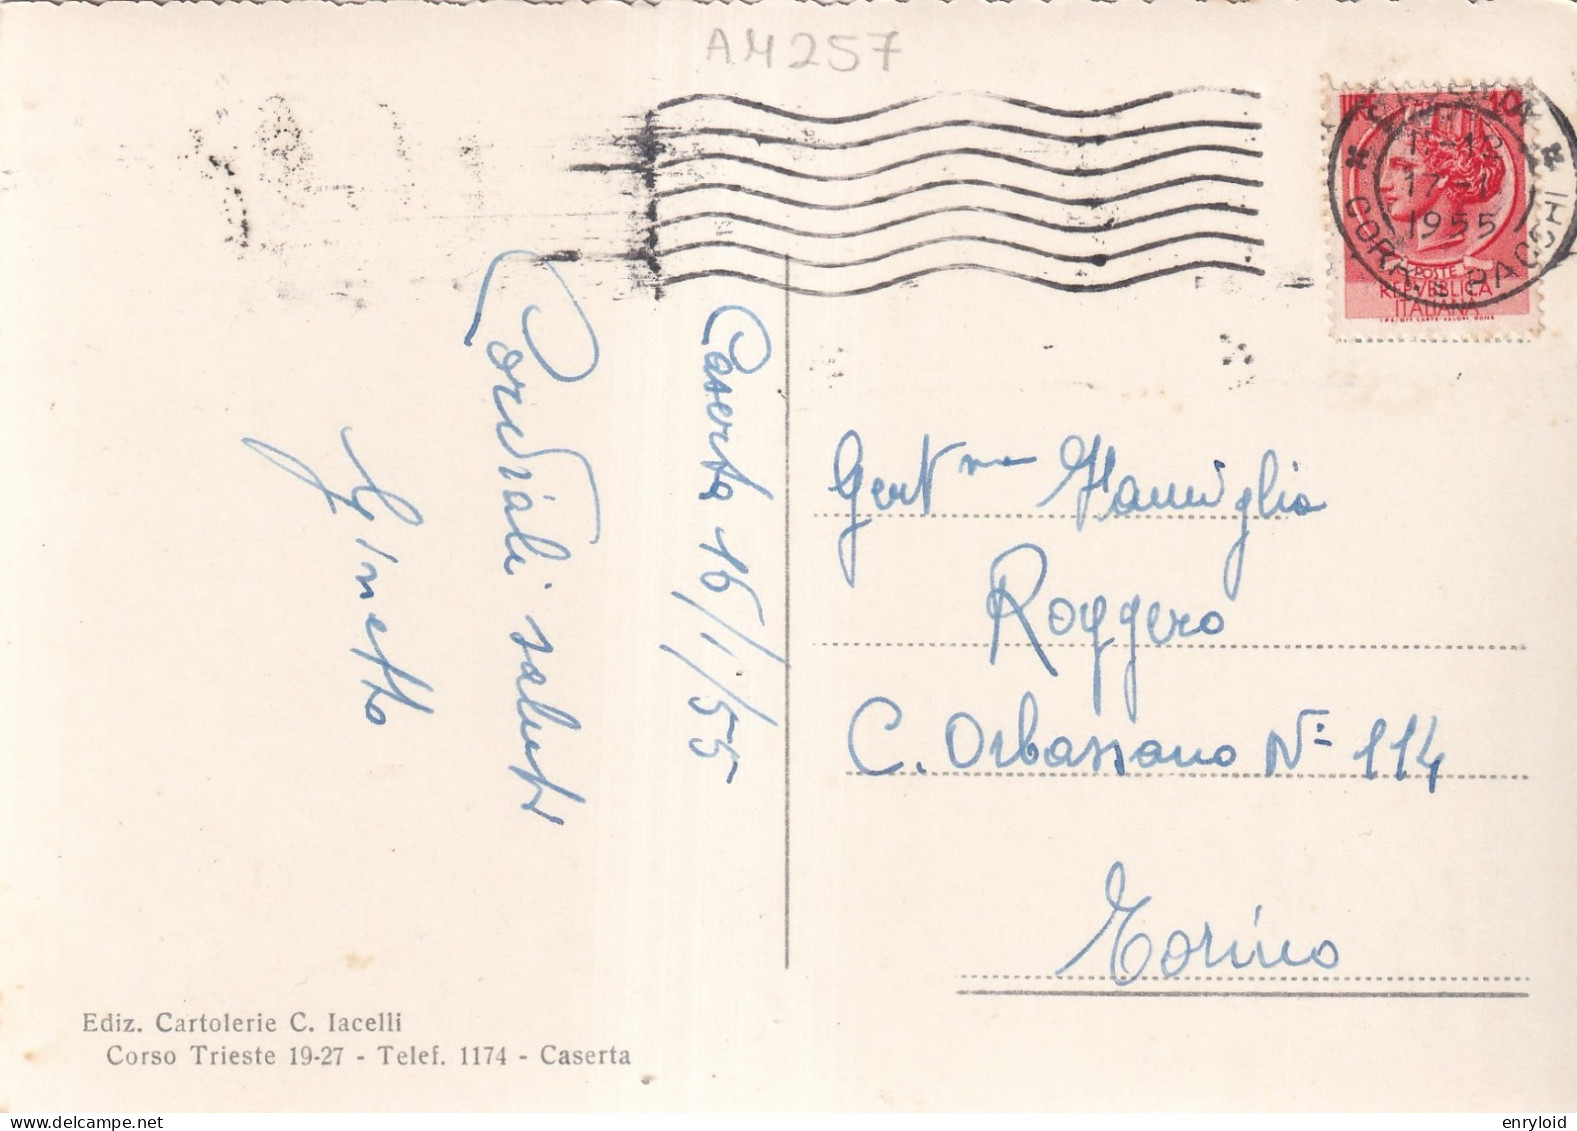 AM257
CASERTA
17-1
1955
CORR. PACCHI
POSTE
REPVBBLICA
ITALIANA
Caserta 16/1/55
Cordiali saluti
Ginetto
Gent.ma Famiglia
Roggero
C. Orbassano N= 114
Torino
Ediz. Cartolerie C. Iacelli
Corso Trieste 19-27 - Telef. 1174 - Caserta
enryloid